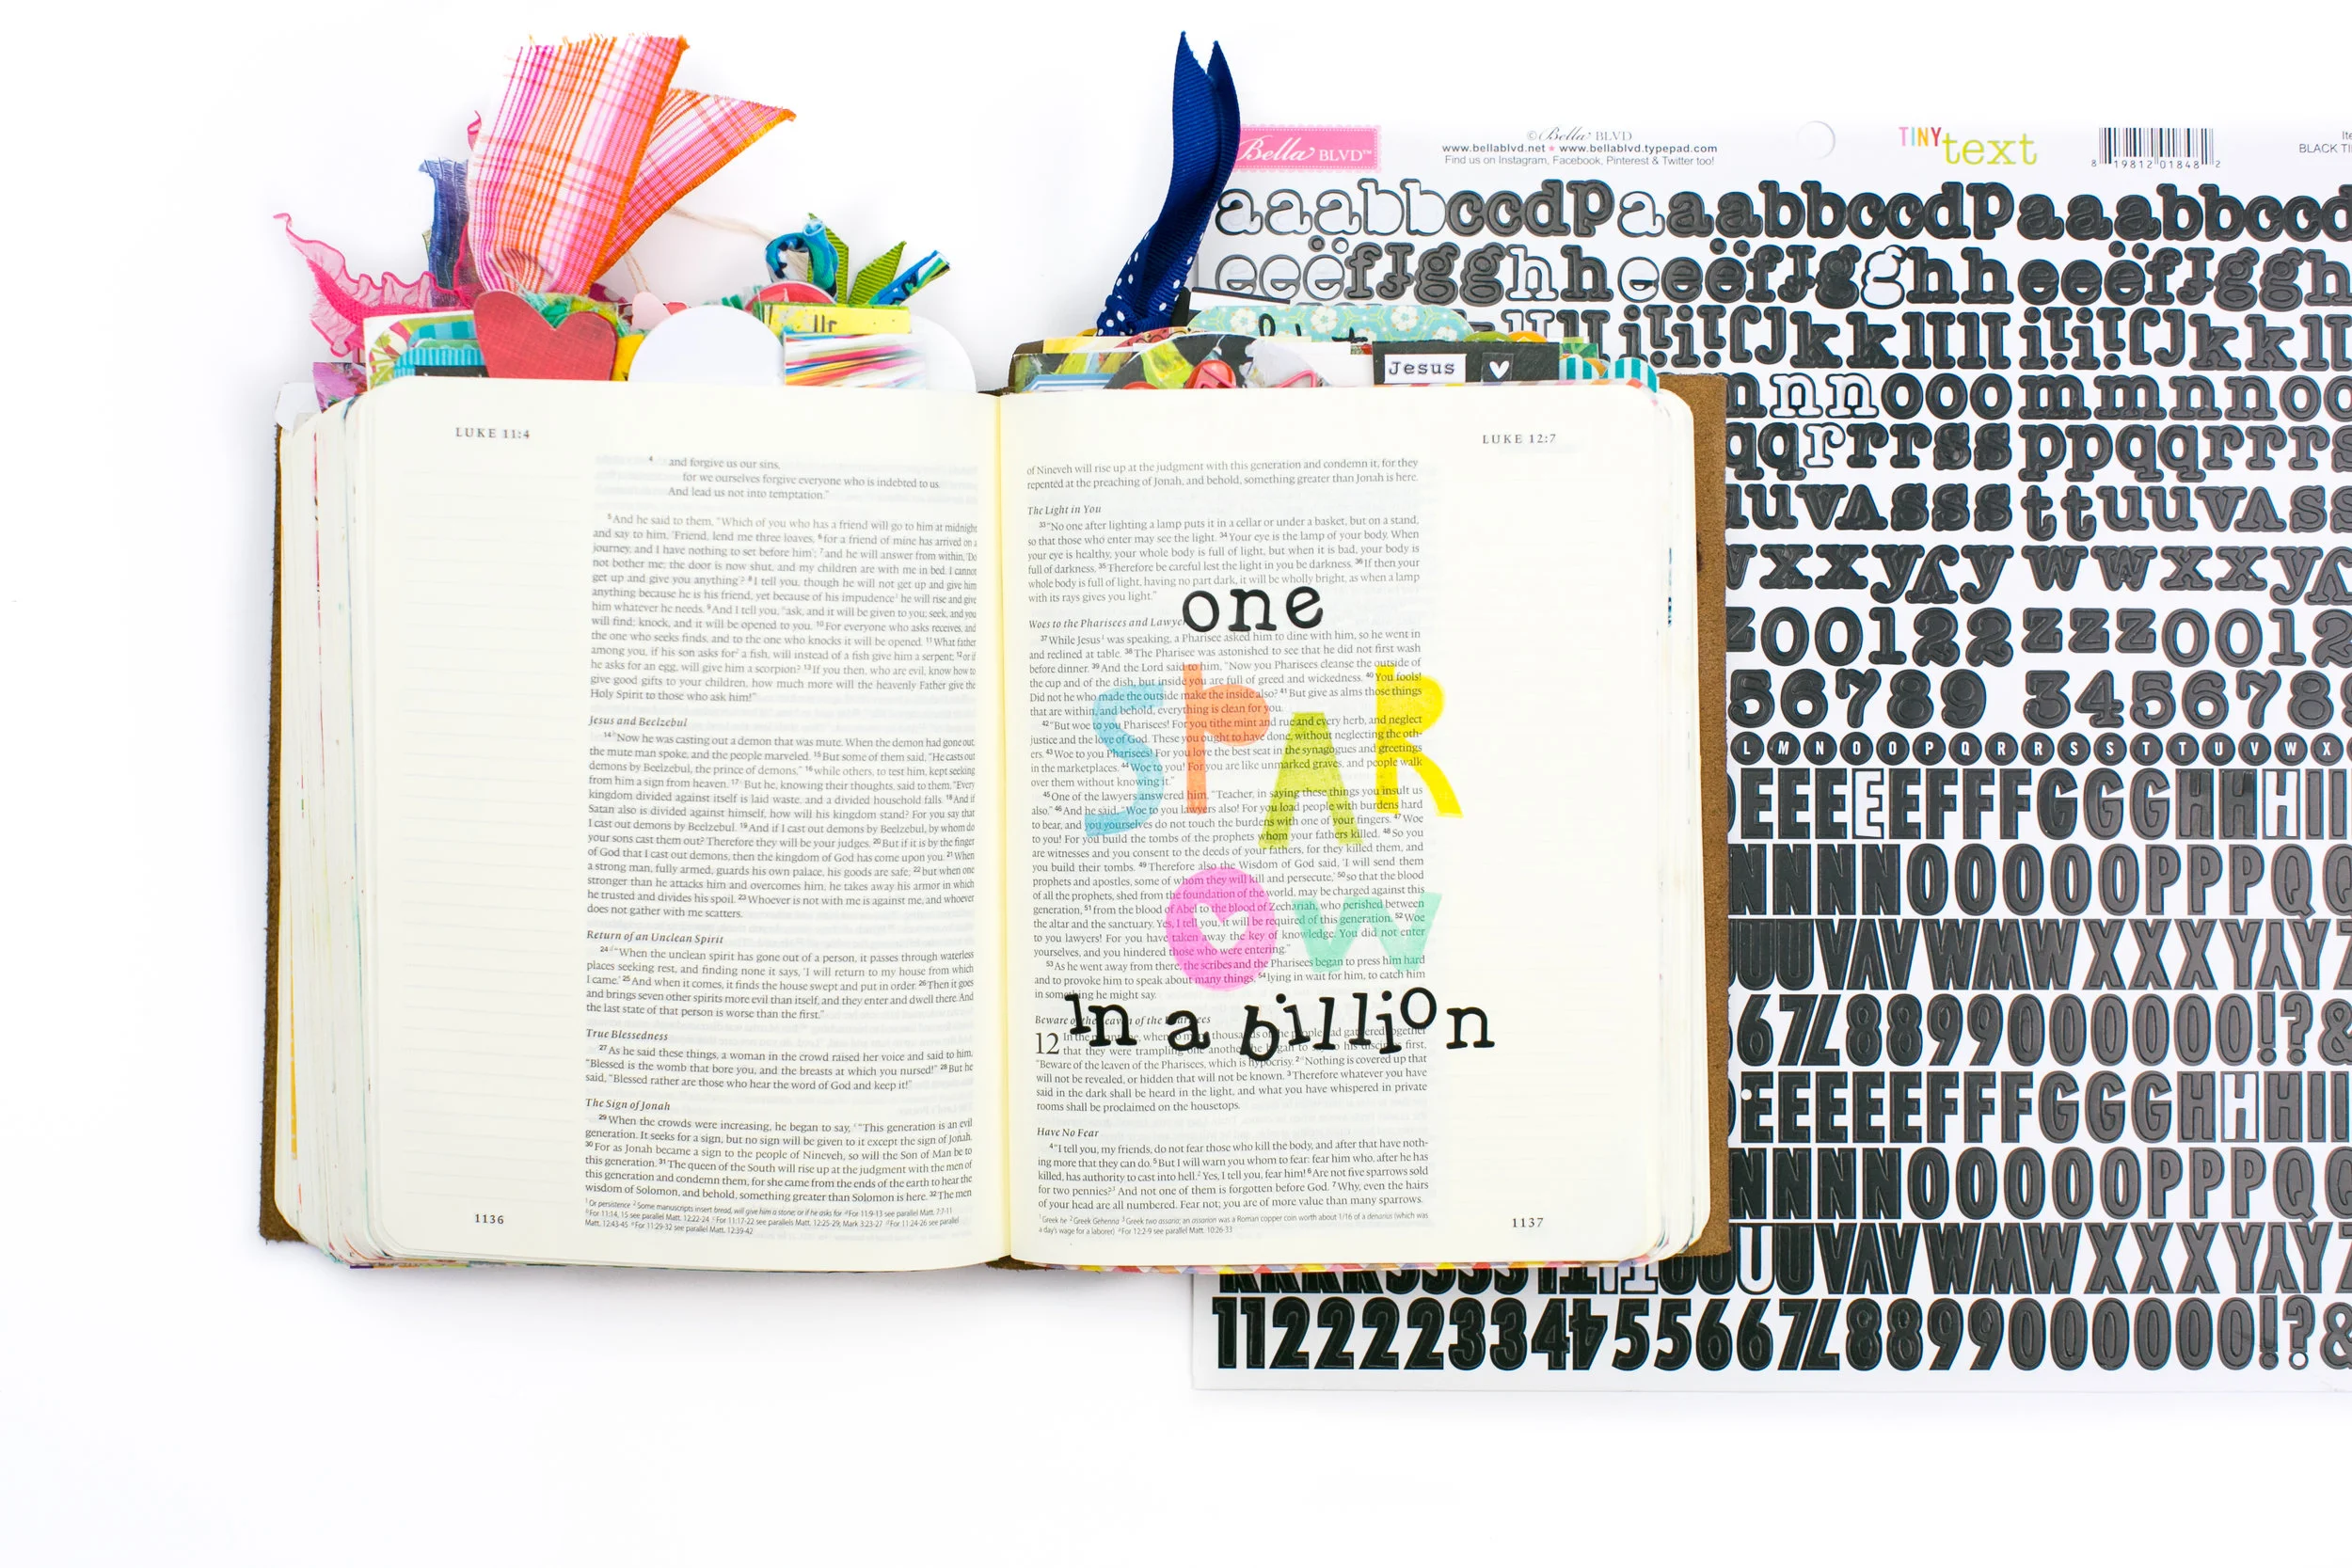 Bella BLVD™
©Bella BLVD
www.bellablvd.net • www.bellablvd.typepad.com
Find us on Instagram, Facebook, Pinterest & Twitter too!
TINY
text
8 19812 01848 2
BLACK TI
Jesus
LUKE 11:4
4 and forgive us our sins,
for we ourselves forgive everyone who is indebted to us.
And lead us not into temptation."
5And he said to them, "Which of you who has a friend will go to him at midnight
and say to him, 'Friend, lend me three loaves, 6for a friend of mine has arrived on a
journey, and I have nothing to set before him'; 7and he will answer from within, 'Do
not bother me; the door is now shut, and my children are with me in bed. I cannot
get up and give you anything'? 8I tell you, though he will not get up and give him
anything because he is his friend, yet because of his impudence1 he will rise and give
him whatever he needs. 9And I tell you, ask, and it will be given to you; seek, and you
will find; knock, and it will be opened to you. 10For everyone who asks receives, and
the one who seeks finds, and to the one who knocks it will be opened. 11What father
among you, if his son asks for2 a fish, will instead of a fish give him a serpent; 12or if
he asks for an egg, will give him a scorpion? 13If you then, who are evil, know how to
give good gifts to your children, how much more will the heavenly Father give the
Holy Spirit to those who ask him!"
Jesus and Beelzebul
14Now he was casting out a demon that was mute. When the demon had gone out,
the mute man spoke, and the people marveled. 15But some of them said, "He casts out
demons by Beelzebul, the prince of demons," 16while others, to test him, kept seeking
from him a sign from heaven. 17But he, knowing their thoughts, said to them, "Every
kingdom divided against itself is laid waste, and a divided household falls. 18And if
Satan also is divided against himself, how will his kingdom stand? For you say that
I cast out demons by Beelzebul. 19And if I cast out demons by Beelzebul, by whom do
your sons cast them out? Therefore they will be your judges. 20But if it is by the finger
of God that I cast out demons, then the kingdom of God has come upon you. 21When
a strong man, fully armed, guards his own palace, his goods are safe; 22but when one
stronger than he attacks him and overcomes him, he takes away his armor in which
he trusted and divides his spoil. 23Whoever is not with me is against me, and whoever
does not gather with me scatters.
Return of an Unclean Spirit
24"When the unclean spirit has gone out of a person, it passes through waterless
places seeking rest, and finding none it says, 'I will return to my house from which
I came.' 25And when it comes, it finds the house swept and put in order. 26Then it goes
and brings seven other spirits more evil than itself, and they enter and dwell there. And
the last state of that person is worse than the first."
True Blessedness
27As he said these things, a woman in the crowd raised her voice and said to him,
"Blessed is the womb that bore you, and the breasts at which you nursed!" 28But he
said, "Blessed rather are those who hear the word of God and keep it!"
The Sign of Jonah
29When the crowds were increasing, he began to say, "This generation is an evil
generation. It seeks for a sign, but no sign will be given to it except the sign of Jonah.
30For as Jonah became a sign to the people of Nineveh, so will the Son of Man be to
this generation. 31The queen of the South will rise up at the judgment with the men of
this generation and condemn them, for she came from the ends of the earth to hear the
wisdom of Solomon, and behold, something greater than Solomon is here. 32The men
1136
LUKE 12:7
of Nineveh will rise up at the judgment with this generation and condemn it, for they
repented at the preaching of Jonah, and behold, something greater than Jonah is here.
The Light in You
33"No one after lighting a lamp puts it in a cellar or under a basket, but on a stand,
so that those who enter may see the light. 34Your eye is the lamp of your body. When
your eye is healthy, your whole body is full of light, but when it is bad, your body is
full of darkness. 35Therefore be careful lest the light in you be darkness. 36If then your
whole body is full of light, having no part dark, it will be wholly bright, as when a lamp
with its rays gives you light."
one
Woes to the Pharisees and Lawyer
37While Jesus1 was speaking, a Pharisee asked him to dine with him, so he went in
and reclined at table. 38The Pharisee was astonished to see that he did not first wash
before dinner. 39And the Lord said to him, "Now you Pharisees cleanse the outside of
the cup and of the dish, but inside you are full of greed and wickedness. 40You fools!
Did not he who made the outside make the inside also? 41But give as alms those things
that are within, and behold, everything is clean for you.
SPAR
42"But woe to you Pharisees! For you tithe mint and rue and every herb, and neglect
justice and the love of God. These you ought to have done, without neglecting the oth-
ers. 43Woe to you Pharisees! For you love the best seat in the synagogues and greetings
in the marketplaces. 44Woe to you! For you are like unmarked graves, and people walk
over them without knowing it."
45One of the lawyers answered him, "Teacher, in saying these things you insult us
also." 46And he said, "Woe to you lawyers also! For you load people with burdens hard
to bear, and you yourselves do not touch the burdens with one of your fingers. 47Woe
to you! For you build the tombs of the prophets whom your fathers killed. 48So you
are witnesses and you consent to the deeds of your fathers, for they killed them, and
you build their tombs. 49Therefore also the Wisdom of God said, 'I will send them
prophets and apostles, some of whom they will kill and persecute,' 50so that the blood
of all the prophets, shed from the foundation of the world, may be charged against this
generation, 51from the blood of Abel to the blood of Zechariah, who perished between
the altar and the sanctuary. Yes, I tell you, it will be required of this generation. 52Woe
to you lawyers! For you have taken away the key of knowledge. You did not enter
yourselves, and you hindered those who were entering."
OW
53As he went away from there, the scribes and the Pharisees began to press him hard
and to provoke him to speak about many things, 54lying in wait for him, to catch him
in something he might say.
in a billion
12
that they were trampling one another, he began to say to his disciples first,
"Beware of the leaven of the Pharisees, which is hypocrisy. 2Nothing is covered up that
will not be revealed, or hidden that will not be known. 3Therefore whatever you have
said in the dark shall be heard in the light, and what you have whispered in private
rooms shall be proclaimed on the housetops.
Have No Fear
4"I tell you, my friends, do not fear those who kill the body, and after that have noth-
ing more that they can do. 5But I will warn you whom to fear: fear him who, after he has
killed, has authority to cast into hell.2 Yes, I tell you, fear him! 6Are not five sparrows sold
for two pennies?3 And not one of them is forgotten before God. 7Why, even the hairs
of your head are all numbered. Fear not; you are of more value than many sparrows.
1 Greek he 2 Greek Gehenna 3 Greek two assaria; an assarion was a Roman copper coin worth about 1/16 of a denarius (which was
a day's wage for a laborer)
1137